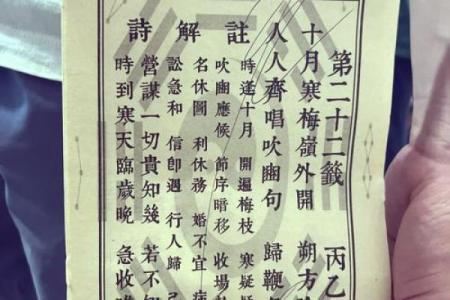 第二十二籤 丙乙
十月寒梅嶺外開 朔方
人人齊唱吹豳句 歸鞭
註解詩
時逢十月 開遍梅枝 寒疑
吹豳應候 節序暗移 收場
名休圖 利休務 婚不宜 病
訟急和 信即遇 行人歸
營謀一切貴知幾 若不
時到寒天臨歲晚 急收